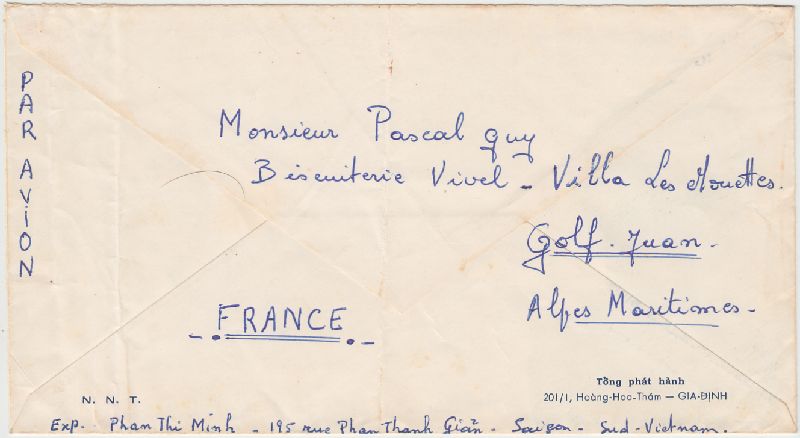 PAR AVION
Monsieur Pascal Guy
Biscuiterie Vivel - Villa Les Mouettes.
Golf-Juan.
Alpes Maritimes-
-.FRANCE.-
Tổng phát hành
N. N. T.
201/1, Hoàng-Hoa-Thám — GIA-ĐỊNH
Exp. Phan Thi Minh - 195 rue Phan Thanh Giản - Saigon - Sud-Vietnam.